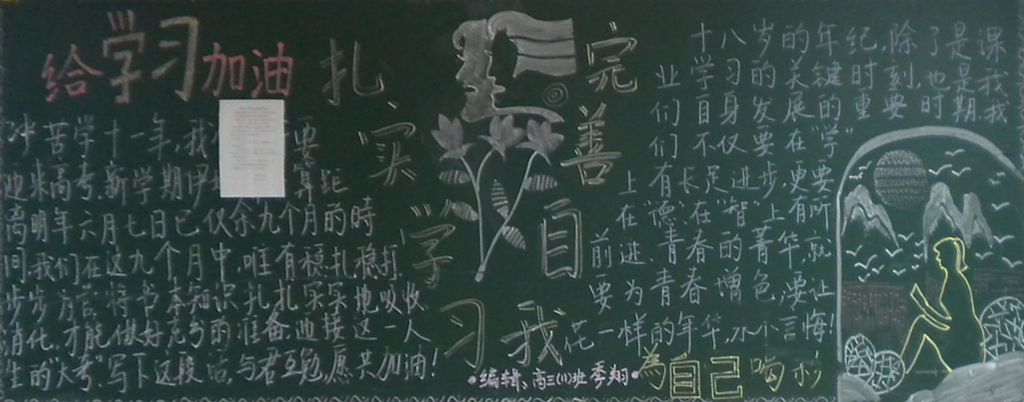 给学习加油
冲苦学十一年,我 要
迎来高考.新学期伊 算距
离明年六月七日已仅余九个月的時
间我们在这九个月中,唯有稳扎,稳打
步步 将书本知识扎扎实实地吸收
消化,才能做好充分的准备迎接这一人
生的"大考".写下这段话,与君互勉,愿共加油!
扎实学习
完善自我
十八岁的年纪,除了是课
业学习的关键时刻,也是我
们自身发展的重要时期.我
们不仅要在"学"
上有长足进步,更要
在"德"在"智"上有所
前进.青春的菁华,就
要为青春增色,要让
花一样的年华,永不言悔!
為自己喝彩
•编辑:高三(11)班 季翔•